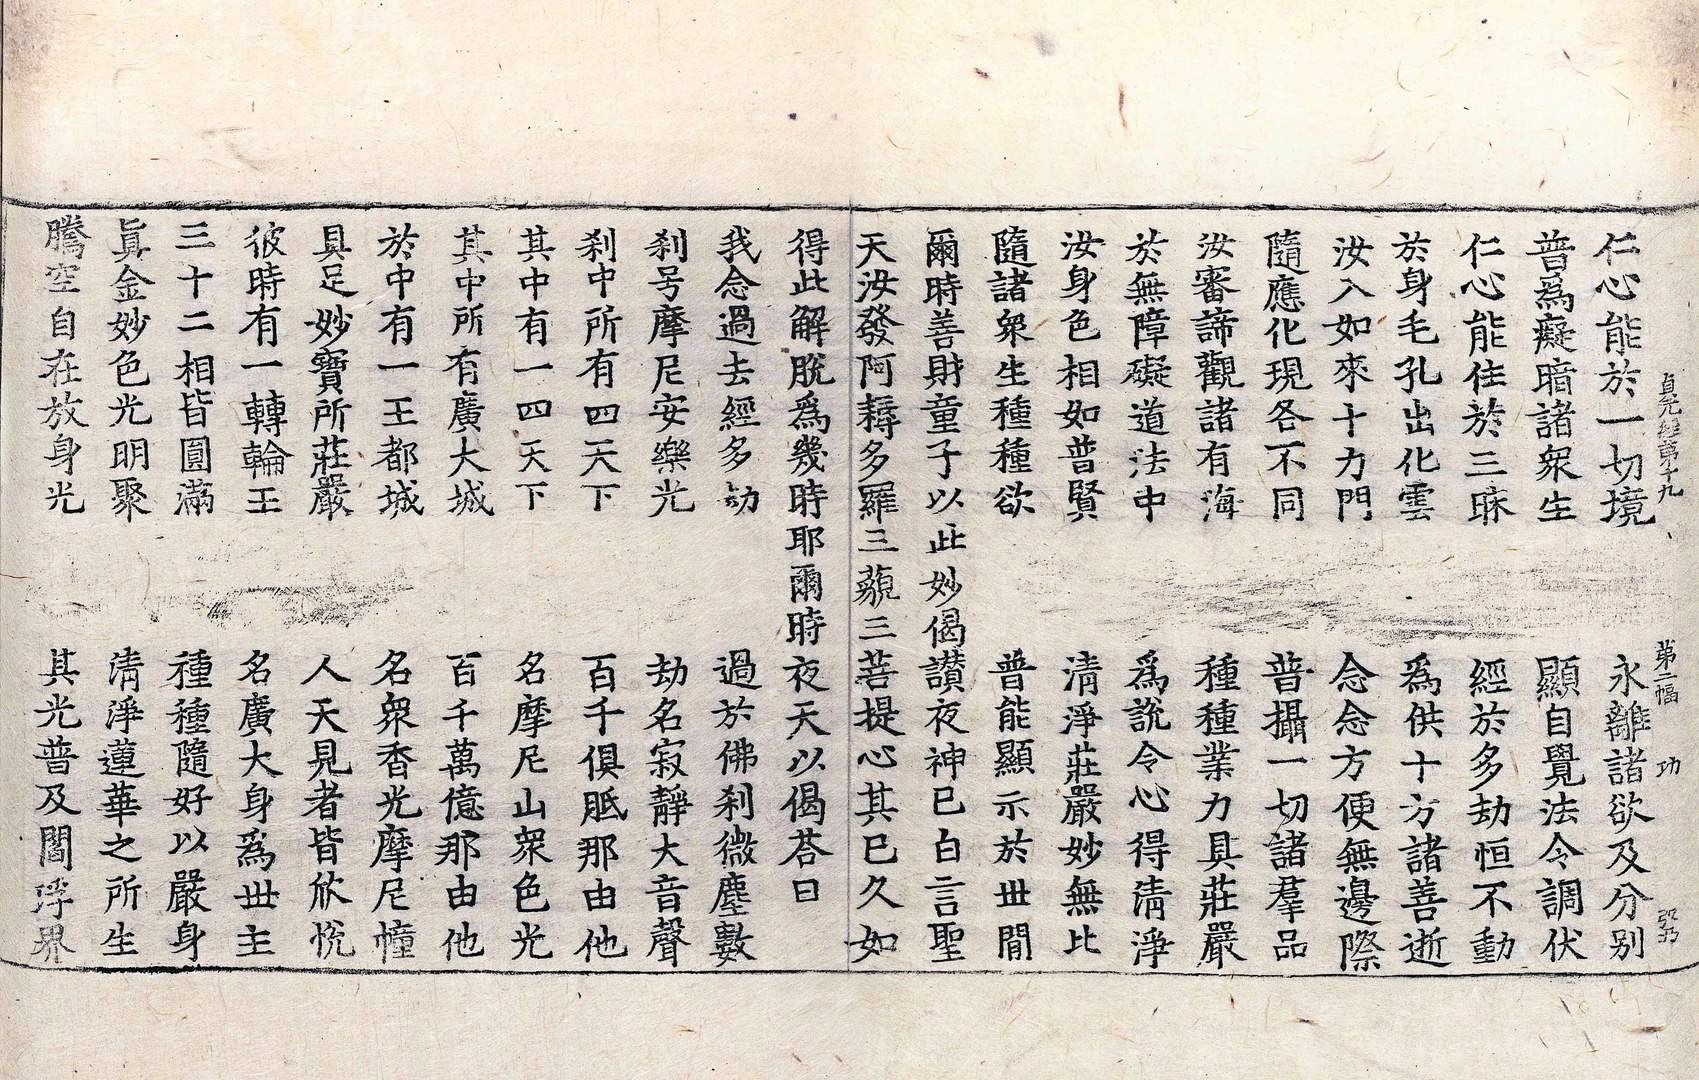 貞元經第十九 第二幅 功
仁心能於一切境 永離諸欲及分别
普爲癡暗諸衆生 顯自覺法令調伏
仁心能住於三昧 經於多劫恒不動
於身毛孔出化雲 爲供十方諸善逝
汝入如來十力門 念念方便無邊際
隨應化現各不同 普攝一切諸羣品
汝審諦觀諸有海 種種業力具莊嚴
於無障礙道法中 爲說令心得淸淨
汝身色相如普賢 淸淨莊嚴妙無比
隨諸衆生種種欲 普能顯示於世間
爾時善財童子以此妙偈讃夜神已白言聖
天汝發阿耨多羅三藐三菩提心其已久如
得此解脫爲幾時耶爾時夜天以偈荅曰
我念過去經多劫 過於佛刹微塵數
刹号摩尼安樂光 劫名寂靜大音聲
刹中所有四天下 百千俱胝那由他
其中有一四天下 名摩尼山衆色光
其中所有廣大城 百千萬億那由他
於中有一王都城 名衆香光摩尼幢
具足妙寶所莊嚴 人天見者皆欣悅
彼時有一轉輪王 名廣大身爲世主
三十二相皆圓滿 種種隨好以嚴身
眞金妙色光明聚 淸淨蓮華之所生
騰空自在放身光 其光普及閻浮界